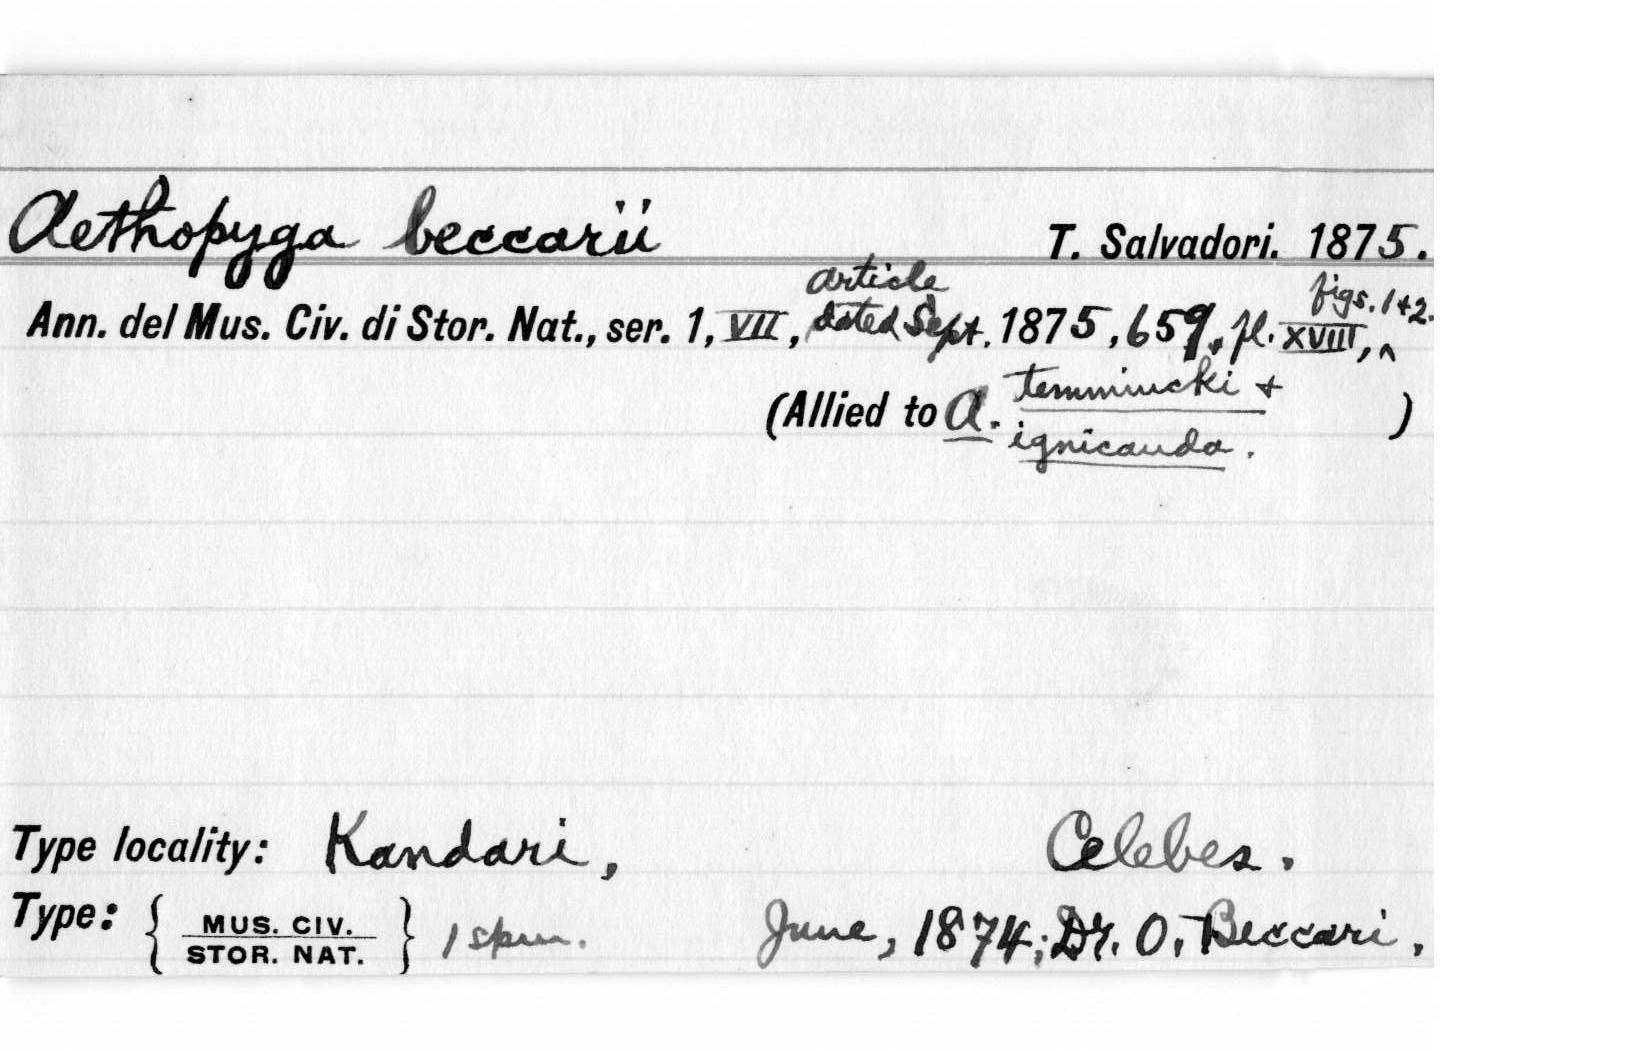 Aethopyga beccarii T. Salvadori. 1875.
Ann. del Mus. Civ. di Stor. Nat., ser. 1, VII, article dated Sept. 1875, 659, pl. XVIII, figs. 1+2.
(Allied to A. temmincki + ignicauda.)
Type locality: Kandari, Celebes.
Type: { MUS. CIV. STOR. NAT. } 1 spm. June, 1874; Dr. O. Beccari,